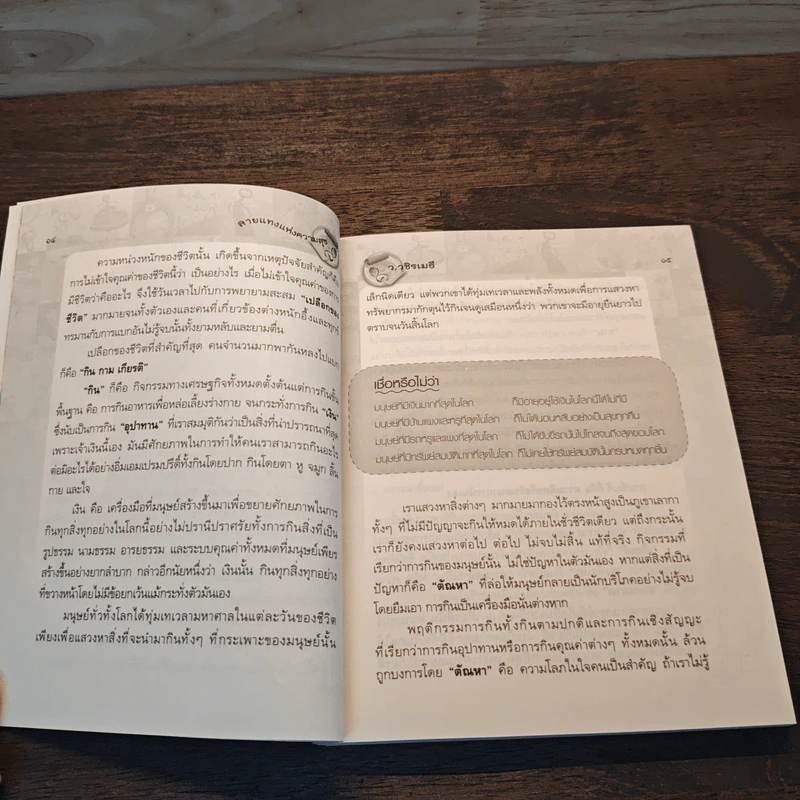 ๑๔
ลายแทงแห่งความสุข
ความหน่วงหนักของชีวิตนั้น เกิดขึ้นจากเหตุปัจจัยสำคัญก็คือ
การไม่เข้าใจคุณค่าของชีวิตนี้ว่า เป็นอย่างไร เมื่อไม่เข้าใจคุณค่าของการ
มีชีวิตว่าคืออะไร จึงใช้วันเวลาไปกับการพยายามสะสม “เปลือกของ
ชีวิต” มากมายจนทั้งตัวเองและคนที่เกี่ยวข้องต่างหนักอึ้งและทุกข์
ทรมานกับการแบกอันไม่รู้จบนั้นทั้งยามหลับและยามตื่น
เปลือกของชีวิตที่สำคัญที่สุด คนจำนวนมากพากันหลงไปแบก
ก็คือ “กิน กาม เกียรติ”
“กิน” ก็คือ กิจกรรมทางเศรษฐกิจทั้งหมดตั้งต้นแต่การกินขั้น
พื้นฐาน คือ การกินอาหารเพื่อหล่อเลี้ยงร่างกาย จนกระทั่งการกิน “เงิน”
ซึ่งนับเป็นการกิน “อุปาทาน” ที่เราสมมุติกันว่าเป็นสิ่งที่น่าปรารถนาที่สุด
เพราะเจ้าเงินนี้เอง มันมีศักยภาพในการทำให้คนเราสามารถกินอะไร
ต่อมิอะไรได้อย่างอิ่มเอมเปรมปรีดิ์ทั้งกินโดยปาก กินโดยตา หู จมูก ลิ้น
กาย และใจ
เงิน คือ เครื่องมือที่มนุษย์สร้างขึ้นมาเพื่อขยายศักยภาพในการ
กินทุกสิ่งทุกอย่างในโลกนี้อย่างไม่ปรานีปราศรัยทั้งการกินสิ่งที่เป็น
รูปธรรม นามธรรม อารยธรรม และระบบคุณค่าทั้งหมดที่มนุษย์เพียร
สร้างขึ้นอย่างยากลำบาก กล่าวอีกนัยหนึ่งว่า เงินนั้น กินทุกสิ่งทุกอย่าง
ที่ขวางหน้าโดยไม่มีข้อยกเว้นแม้กระทั่งตัวมันเอง
มนุษย์ทั่วทั้งโลกได้ทุ่มเทเวลามหาศาลในแต่ละวันของชีวิต
เพียงเพื่อแสวงหาสิ่งที่จะนำมากินทั้งๆ ที่กระเพาะของมนุษย์นั้น
ว.วชิรเมธี
๑๕
เล็กนิดเดียว แต่พวกเขาได้ทุ่มเทเวลาและพลังทั้งหมดเพื่อการแสวงหา
ทรัพยากรมากักตุนไว้กินจนดูเสมือนหนึ่งว่า พวกเขาจะมีอายุยืนยาวไป
ตราบจนวันสิ้นโลก
เชื่อหรือไม่ว่า
มนุษย์ที่มีเงินมากที่สุดในโลก ก็มีอายุอยู่ใช้เงินในโลกนี้ได้ไม่กี่ปี
มนุษย์ที่มีบ้านแพงและหรูที่สุดในโลก ก็ไม่ได้นอนหลับอย่างเป็นสุขทุกคืน
มนุษย์ที่มีรถหรูและแพงที่สุดในโลก ก็ไม่ได้ขับขี่รถนั้นไปไกลจนถึงสุดขอบโลก
มนุษย์ที่มีทรัพย์สมบัติมากที่สุดในโลก ก็ไม่เคยใช้ทรัพย์สมบัตินั้นครบหมดทุกชิ้น
เราแสวงหาสิ่งต่างๆ มากมายมากองไว้ตรงหน้าสูงเป็นภูเขาเลากา
ทั้งๆ ที่ไม่มีปัญญาจะกินให้หมดได้ภายในชั่วชีวิตเดียว แต่ถึงกระนั้น
เราก็ยังคงแสวงหาต่อไป ต่อไป ไม่จบไม่สิ้น แท้ที่จริง กิจกรรมที่
เรียกว่าการกินของมนุษย์นั้น ไม่ใช่ปัญหาในตัวมันเอง หากแต่สิ่งที่เป็น
ปัญหาก็คือ “ตัณหา” ที่ล่อให้มนุษย์กลายเป็นนักบริโภคอย่างไม่รู้จบ
โดยยืมเอา การกินเป็นเครื่องมือนั่นต่างหาก
พฤติกรรมการกินทั้งกินตามปกติและการกินเชิงสัญญะ
ที่เรียกว่าการกินอุปาทานหรือการกินคุณค่าต่างๆ ทั้งหมดนั้น ล้วน
ถูกบงการโดย “ตัณหา” คือ ความโลภในใจคนเป็นสำคัญ ถ้าเราไม่รู้